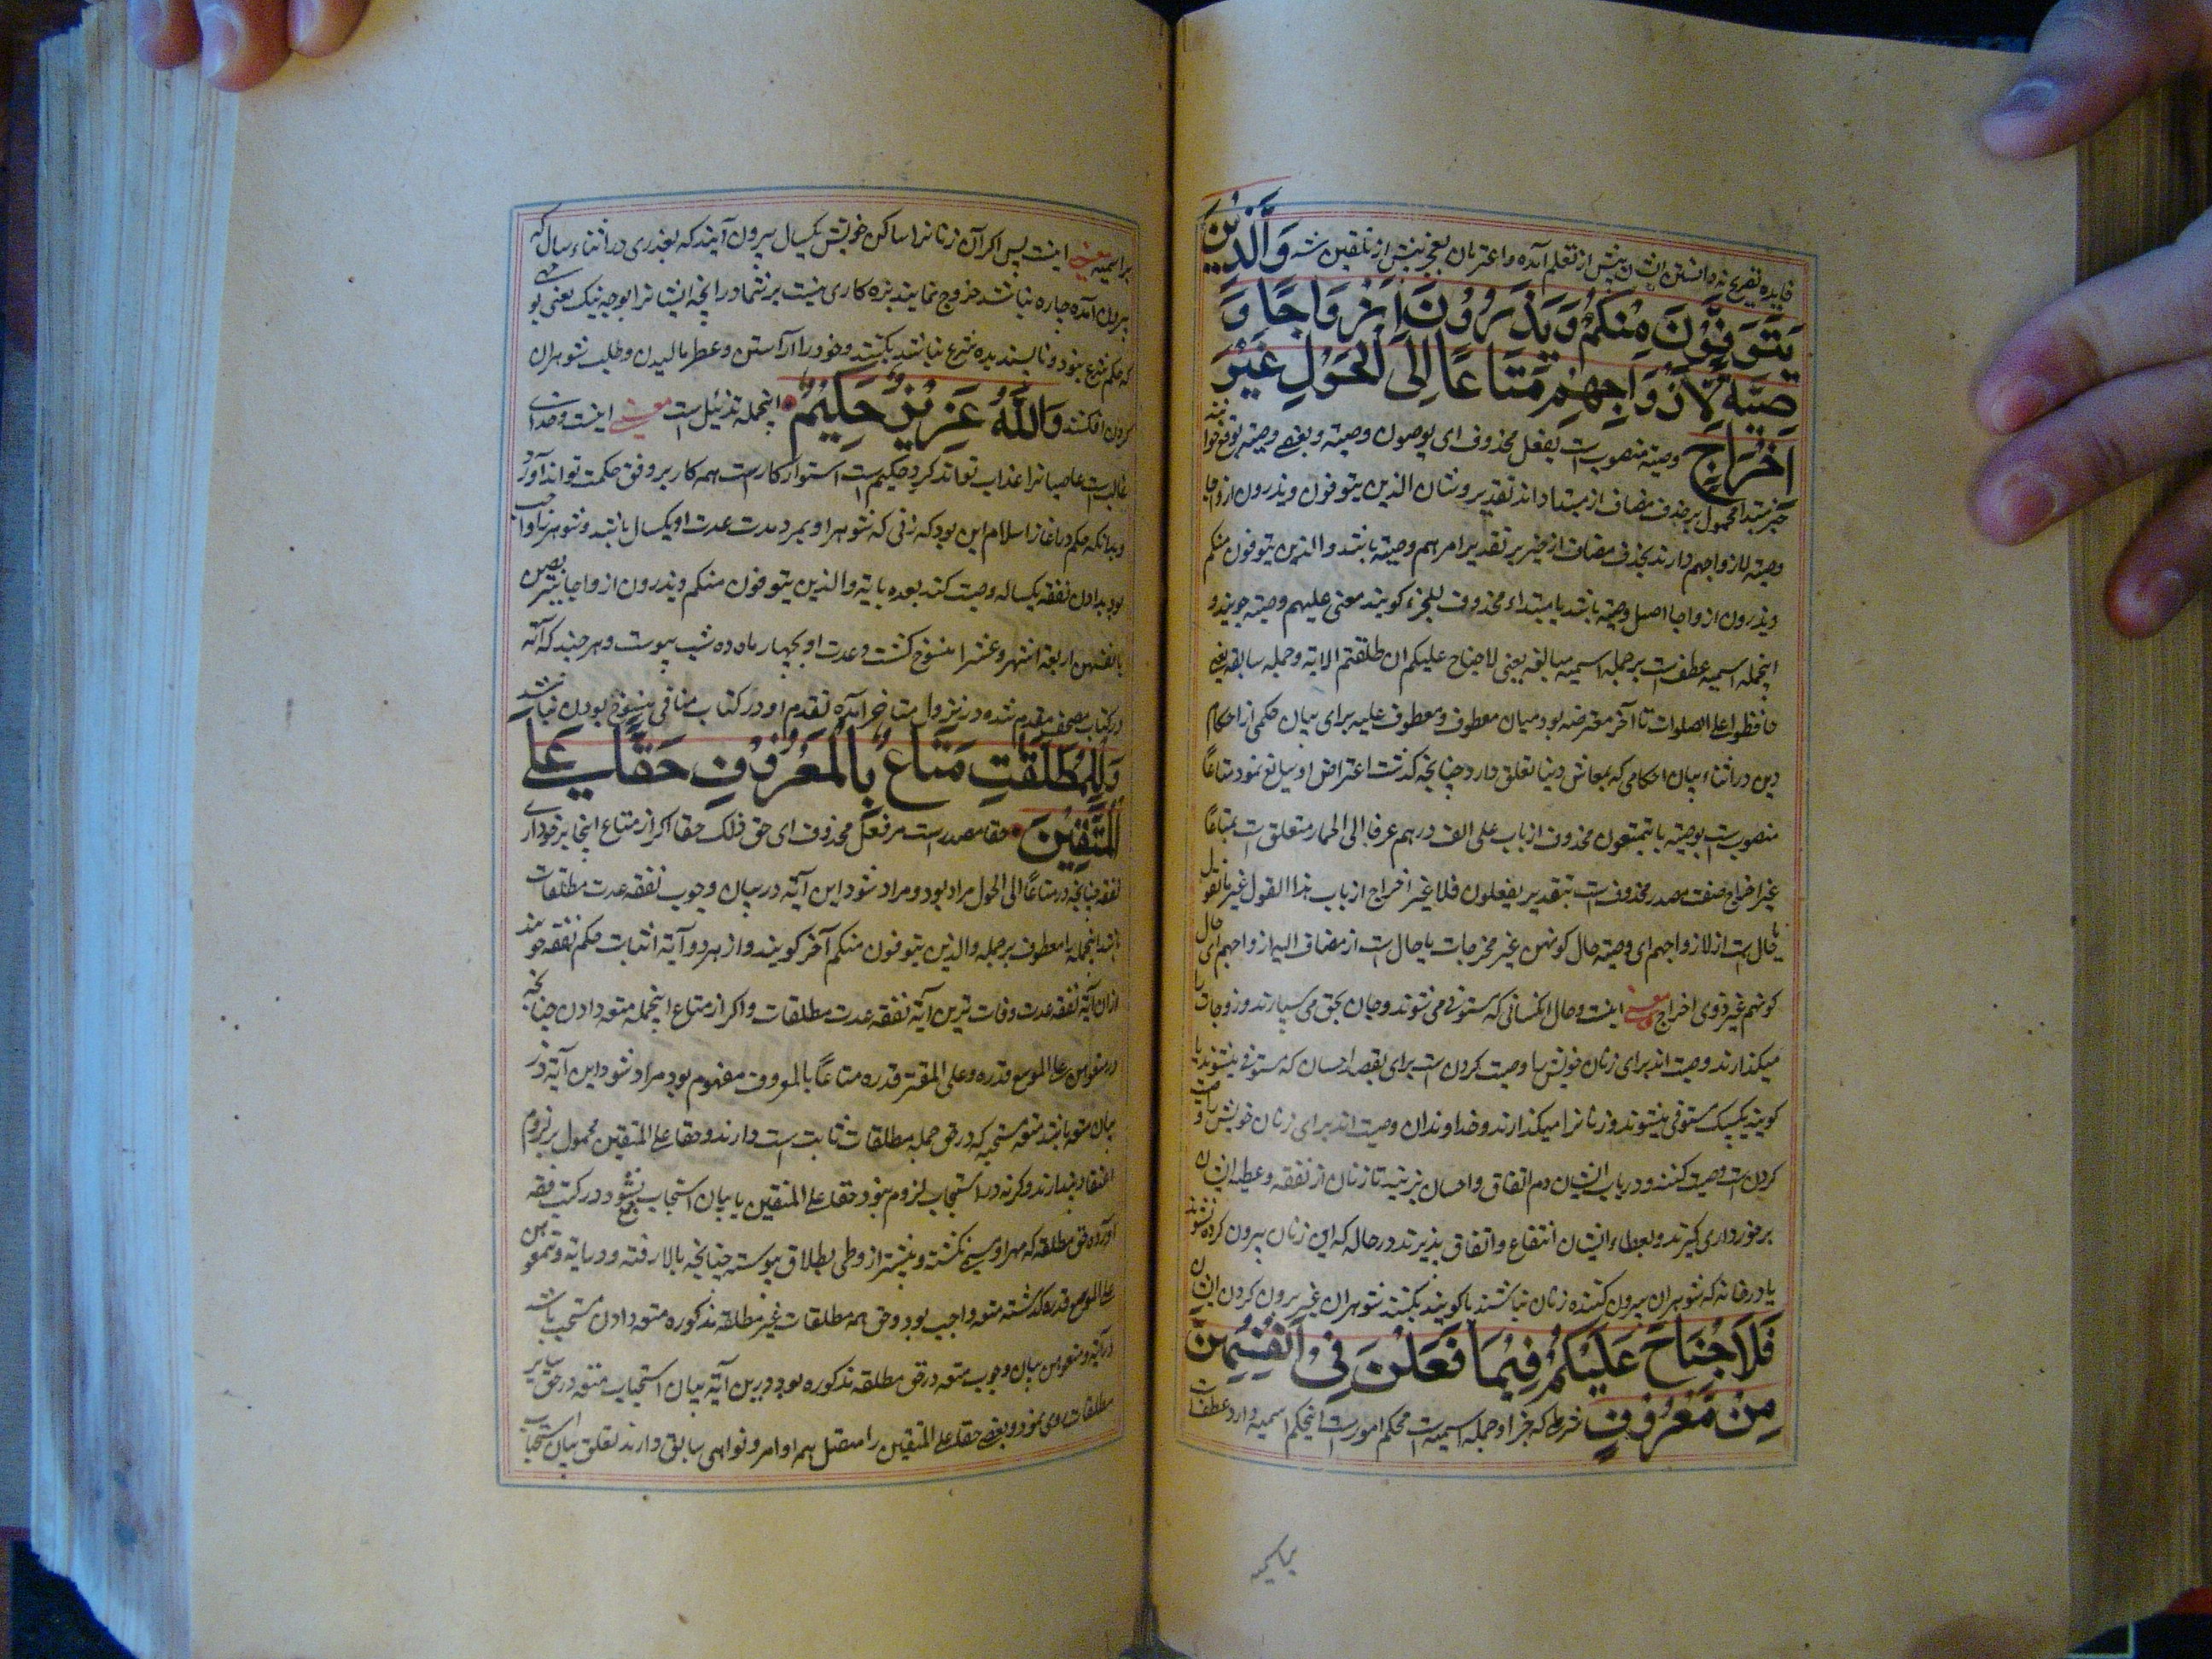 فایده تفریع نه دانستن ایشان پیش از تعلم آمده و اعتراف بعجز پیش از تلقین شد وَالَّذِيْنَ
يُتَوَفَّوْنَ مِنْكُمْ وَيَذَرُوْنَ اَزْوَاجًا وَ
صِيَّةً لِّاَزْوَاجِهِمْ مَّتَاعًا اِلَى الْحَوْلِ غَيْرَ
اِخْرَاجٍ وصیته منصوب است بفعل محذوف ای یوصون وصیته و بعضی وصیته بر فع خوانند
خبر مبتدا محمول بر حذف مضاف از مبتدا داند تقدیر وشان الذین یتوفون ویذرون ازواجا
وصیته لازواجهم دارند بحذف مضاف از خبر بر تقدیر امرهم وصیته باشد والذین یتوفون منکم
ویذرون ازواجا اصل وصیته باشد یا مبتداء محذوف للخبر کویند معنی علیهم وصیته جویند و
اینجمله اسمیه عطف است بر جمله اسمیه سابقه یعنی لا جناح علیکم ان طلقتم الایه و جمله سابقه یعنی
حافظوا علی الصلوات تا آخر معترضه بود میان معطوف و معطوف علیه برای بیان حکمی از احکام
دین در اثناء بیان احکامی که بمعاش دنیا تعلق دارد چنانچه کذشت اعتراض او سابع نمود متاعًا
منصوب است بوصیته یا بتمتعون محذوف از باب علی الف درهم عرفا الی الحول متعلق است بمتاعًا
غیر اخراج صفت مصدر محذوف است بتقدیر یفعلون فلا غیر اخراج از باب هذا القول غیر ما تقول
یا حال است از لازواجهم ای وصیته حال کونهن غیر مخرجات یا حال است از مضاف الیه ازواجهم ای حال
کونهم غیر ذوی اخراج معنی اینست و حال آنکسانی که ستوفی می شوند و جان بحق می سپارند و زوجات را
میکذارند وصیت اند برای زنان خویش یا وصیت کردن است برای بقصد احسان که ستوفی میشوند یا
کویند یکیک ستوفی میشوند و زنانرا میکذارند و خداوندان وصیت اند برای زنان خویش و وصیت
کردن است وصیت کنند و در باب ایشان دم اتفاق و احسان بزنید تا زنان از نفقه و عطیه ایشان
برخورداری کیرند و بعطاء ایشان انتفاع و اتفاق پذیرند در حاله که این زنان بیرون کرده نشوند
یا در خانه که شوهران بیرون کننده زنان نباشند یا کویند بکنند شوهران غیر بیرون کردن ایشان
فَلَا جُنَاحَ عَلَيْكُمْ فِيْمَا فَعَلْنَ فِيْ اَنْفُسِهِنَّ
مِنْ مَّعْرُوْفٍ شرط که جزا و جمله اسمیه است محکم امور است اینحکم اسمیه دارد عطف است
بر اسمیه
بر اسمیه معنی اینست پس اکر آن زنان از ساکن خویش یکسال بیرون آیند که بعذری در اثناء سال که
بیرون آمده چاره نباشد خروج نمایند بزه کاری نیست بر شما در انچه ایشانرا بوجه نیک یعنی بوجهی
که حکم شرع بود و نا پسندیده شرع نباشد بکنند و خود را آراستن و عطر مالیدن و طلب شوهران
کردن افکنند وَاللّٰهُ عَزِيْزٌ حَكِيْمٌ اینجمله تذئیل است معنی اینست و خدای
غالب است عاصیانرا عذاب تواند کرد و حکیم است استوار کار است همه کار بر وفق حکمت تواند آورد
و بدانکه حکم در آغاز اسلام این بود که زنی که شوهر او بمیرد مدت عدت او یکسال باشد و شوهر را واجب
بود بدادن نفقه یکساله وصیت کند بعده بایته والذین یتوفون منکم ویذرون ازواجا یتربصن
بانفسهن اربعة اشهر وعشرا منسوخ کشت و عدت او بچهار ماه ده شب پیوست و هر چند که آیه
در کتاب مصحف مقدم شده در نزول متاخر آمده تقدم او در کتاب منافی منسوخ بودن نباشد
وَلِلْمُطَلَّقٰتِ مَتَاعٌ بِالْمَعْرُوْفِ حَقًّا عَلَى
الْمُتَّقِيْنَ حقا مصدر است مر فعل محذوف ای حق ذلک حقا اکر از متاع اینجا برخورداری
نفقه چنانچه در متاعًا الی الحول مراد بود و مراد شود این آیه در بیان وجوب نفقه عدت مطلقات
باشد اینجمله را معطوف بر جمله والذین یتوفون منکم آخر کویند و از هر دو آیه اثبات حکم نفقه جویند
از ان آیه نفقه عدت وفات ترین آیه نفقه عدت مطلقات و اکر از متاع اینجمله متعه دادن چنانچه
در متعوهن علی الموسع قدره و علی المقتر قدره متاعًا بالمعروف مفهوم بود مراد شود این آیه در
بیان متعه باشد متعه مستحبه که در حق جمله مطلقات ثابت است دارند و حقا علی المتقین محمول بر لزوم
اعتقاد پندارند و کرنه در استحباب لزوم نبود و حقا علی المتقین با بیان استحباب جمع نشود و در کتب فقه
آورده حق مطلقه که مهر او مسمی نکشته و پیشتر از وطی بطلاق پیوسته چنانچه بالا رفته و درمایه ومتعوهن
علی الموسع قدره کذشته متعه واجب بود و حق همه مطلقات غیر مطلقه مذکوره متعه دادن مستحب باشد
در آیه ومتعوهن بیان وجوب متعه در حق مطلقه مذکوره بود و درین آیه بیان استحباب متعه در حق سایر
مطلقات روی نمود و بعضی حقا علی المتقین را متصل همه اوامر و نواهی سابق دارند تعلق بیان استحباب